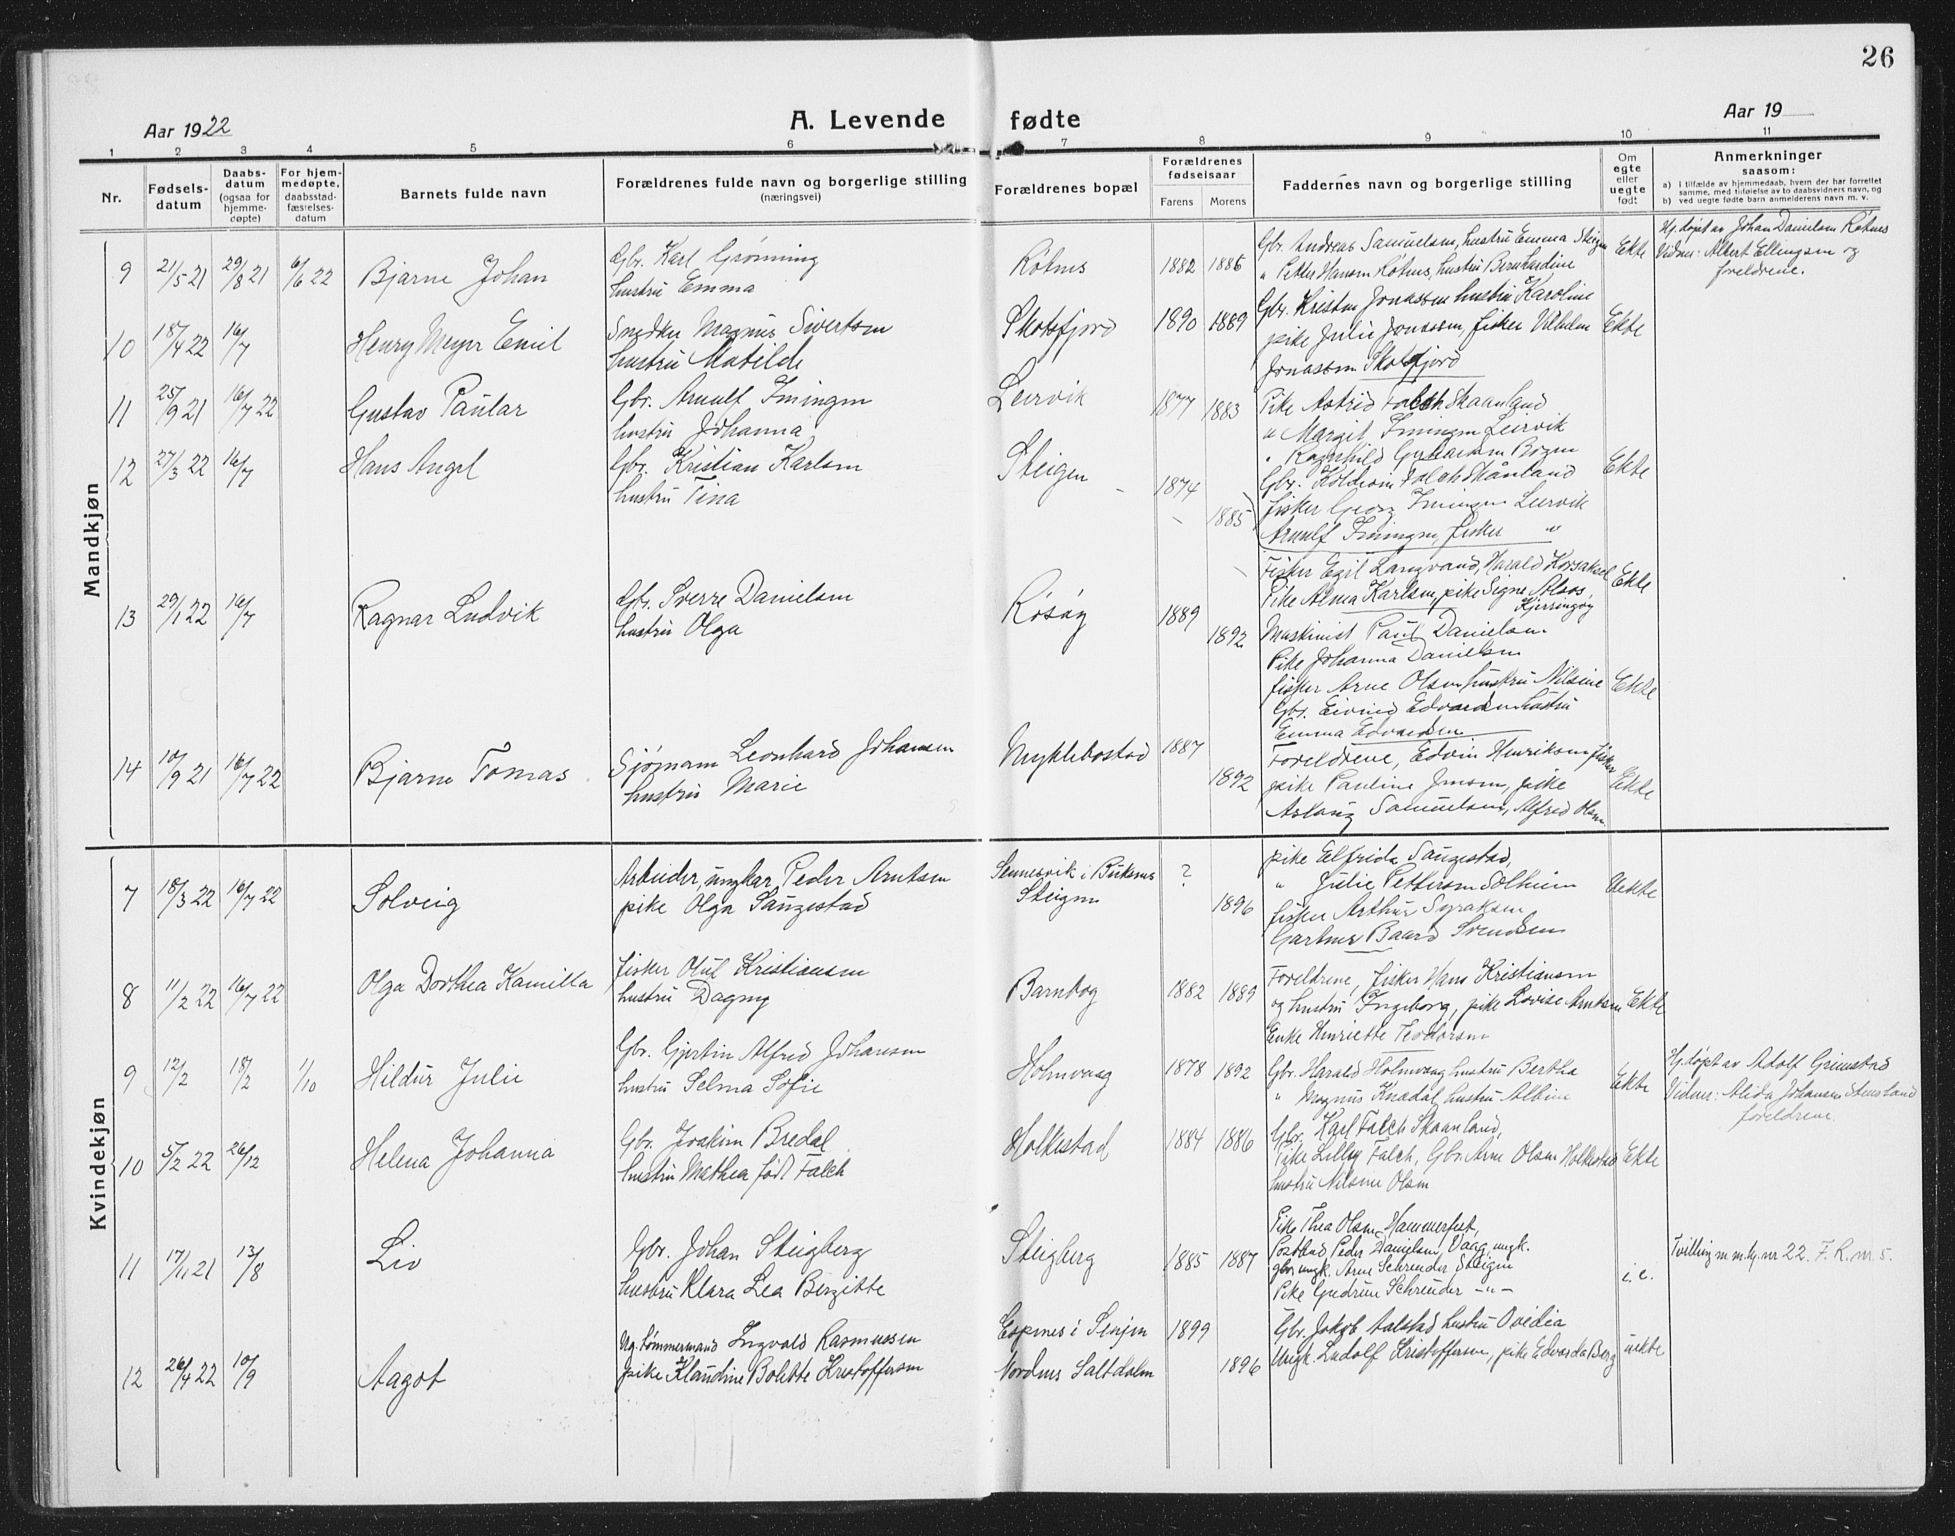 26
Aar 1922 A. Levende fødte Aar 19
1 2 3 4 5 6 7 8 9 10 11
Nr. Fødsels-datum Daabs-datum (ogsaa for hjemme-døpte) For hjem-medøpte, daabsstad-fæstelses-datum Barnets fulde navn Forældrenes fulde navn og borgerlige stilling (næringsvei) Forældrenes bopæl Forældrenes fødselsaar Farens Morens Faddernes navn og borgerlige stilling Om egte eller uegte født Anmerkninger saasom:
a) I tilfælde av hjemmedaab, hvem der har forrettet samme, med tilføielse av to daabsvidners navn, og
b) ved uegte fødte barn anmelderens navn m. v.
Mandkjøn
9 21/5 21 29/8 21 6/6 22 Bjarne Johan Gbr. Karl Grønning Røtnes 1882 1886 Gbr. Andreas Samuelsen, hustru Emma Steigen Ekte Hj.døpt av Johan Danielsen Røtnes
hustru Emma " Petter Hansen Røtnes, hustru Bernhardine Vidner: Albert Ellingsen og
foreldrene.
10 18/4 22 16/7 Henry Meyer Emil Magnus Sivertsen Skotsfjord 1890 1889 Gbr. Kristen Jonassen hustru Karoline Ekte
hustru Matilde pike Julie Jonassen, fisker Vilhelm
Jonassen Skotsfjord
11 25/9 21 16/7 22 Gustav Paular Gbr. Arnulf Iningen Leirvik 1877 1883 Pike Astrid Falch Skaanland
hustru Johanna " Margit Iningen Leirvik
" Ragnhild Bogen
12 27/3 22 16/7 Hans Angel Gbr. Kristian Karlsen Steigen 1874 1885 Gbr. Falch Skånland Ekte
hustru Tina fisker Georg Iningen Leirvik
Arnulf Iningen, fisker "
Fisker Egil Langvand, Harald Korsaksel Ekte
Pike Alma Karlsen, pike Signe
Kjerringøy
13 29/1 22 16/7 Ragnar Ludvik Gbr. Sverre Danielsen Røsøy 1889 1892 Maskinist Paul Danielsen
hustru Olga Pike Johanna Danielsen
fisker Arne Olsen hustru Nilsine Ekte
Gbr. Eivind Edvardsen hustru
Emma Edvardsen
14 10/9 21 16/7 22 Bjarne Tomas Sjømann Leonhard Johansen Myklebostad 1887 1892 Foreldrene, Edvin Henriksen fisker
hustru Marie pike Pauline Jensen, pike Ekte
Aslaug Samuelsen, Alfred Olsen
Kvindekjøn
7 18/3 22 16/7 22 Solveig Arbeider, ungkar Peder Arntsen Sennesvik i Buksnes ? 1896 pike Elfrida Saugestad, Uekte
pike Olga Saugestad Steigen " Julie Pettersen Solheim
fisker Arthur Syraksen
Gartner Baard Svendsen
8 11/2 22 16/7 22 Olga Dorthea Kamilla fisker Oluf Kristiansen Barnkog 1882 1889 Foreldrene, fisker Hans Kristiansen
hustru Dagny og hustru Ingeborg, pike Lovise Arntsen Ekte
Enke Henriette Teodorsen
9 12/2 18/2 1/10 Hildur Julie Gbr. Gjertin Alfred Johansen Holmvaag 1878 1892 Gbr. Harald Holmvaag hustru Bertha Ekte Hj.døpt av Adolf Grimstad
hustru Selma Sofie " Magnus Knædal hustru Albine Vidner: Alida Johansen Stensland
foreldrene
10 5/2 22 26/12 Helena Johanna Gbr. Joakim Bredal Holkestad 1884 1886 Gbr. Karl Falch Skaanland,
hustru Mathea født Falch Pike Lilly Falch, Gbr. Arne Olsen Holkestad Ekte
hustru Nilsine Olsen
11 17/11 21 13/8 Liv Gbr. Johan Steigberg Steigberg 1885 1887 Pike Thea Olsen, Hammerfest, Tvilling m m.kj. nr 22. F.R. nr. 5.
hustru Klara Lea Bergitte Postbud Peder Danielsen, Vaag, ungk.
gbr. ungk. Arne Schrøder Steigen i.e.
Pike Gudrun Schrøder -"-
12 26/4 22 10/9 Aagot Ug. tømmermand Ingvald Rasmussen Espenes i Senjen 1899 1896 Gbr. Jakob Aalstad hustru Ovidia
pike Klaudine Bolette Kristoffersen Nordnes Saltdalen Ungk. Ludolf Kristoffersen, pike Edvarda Berg uekte